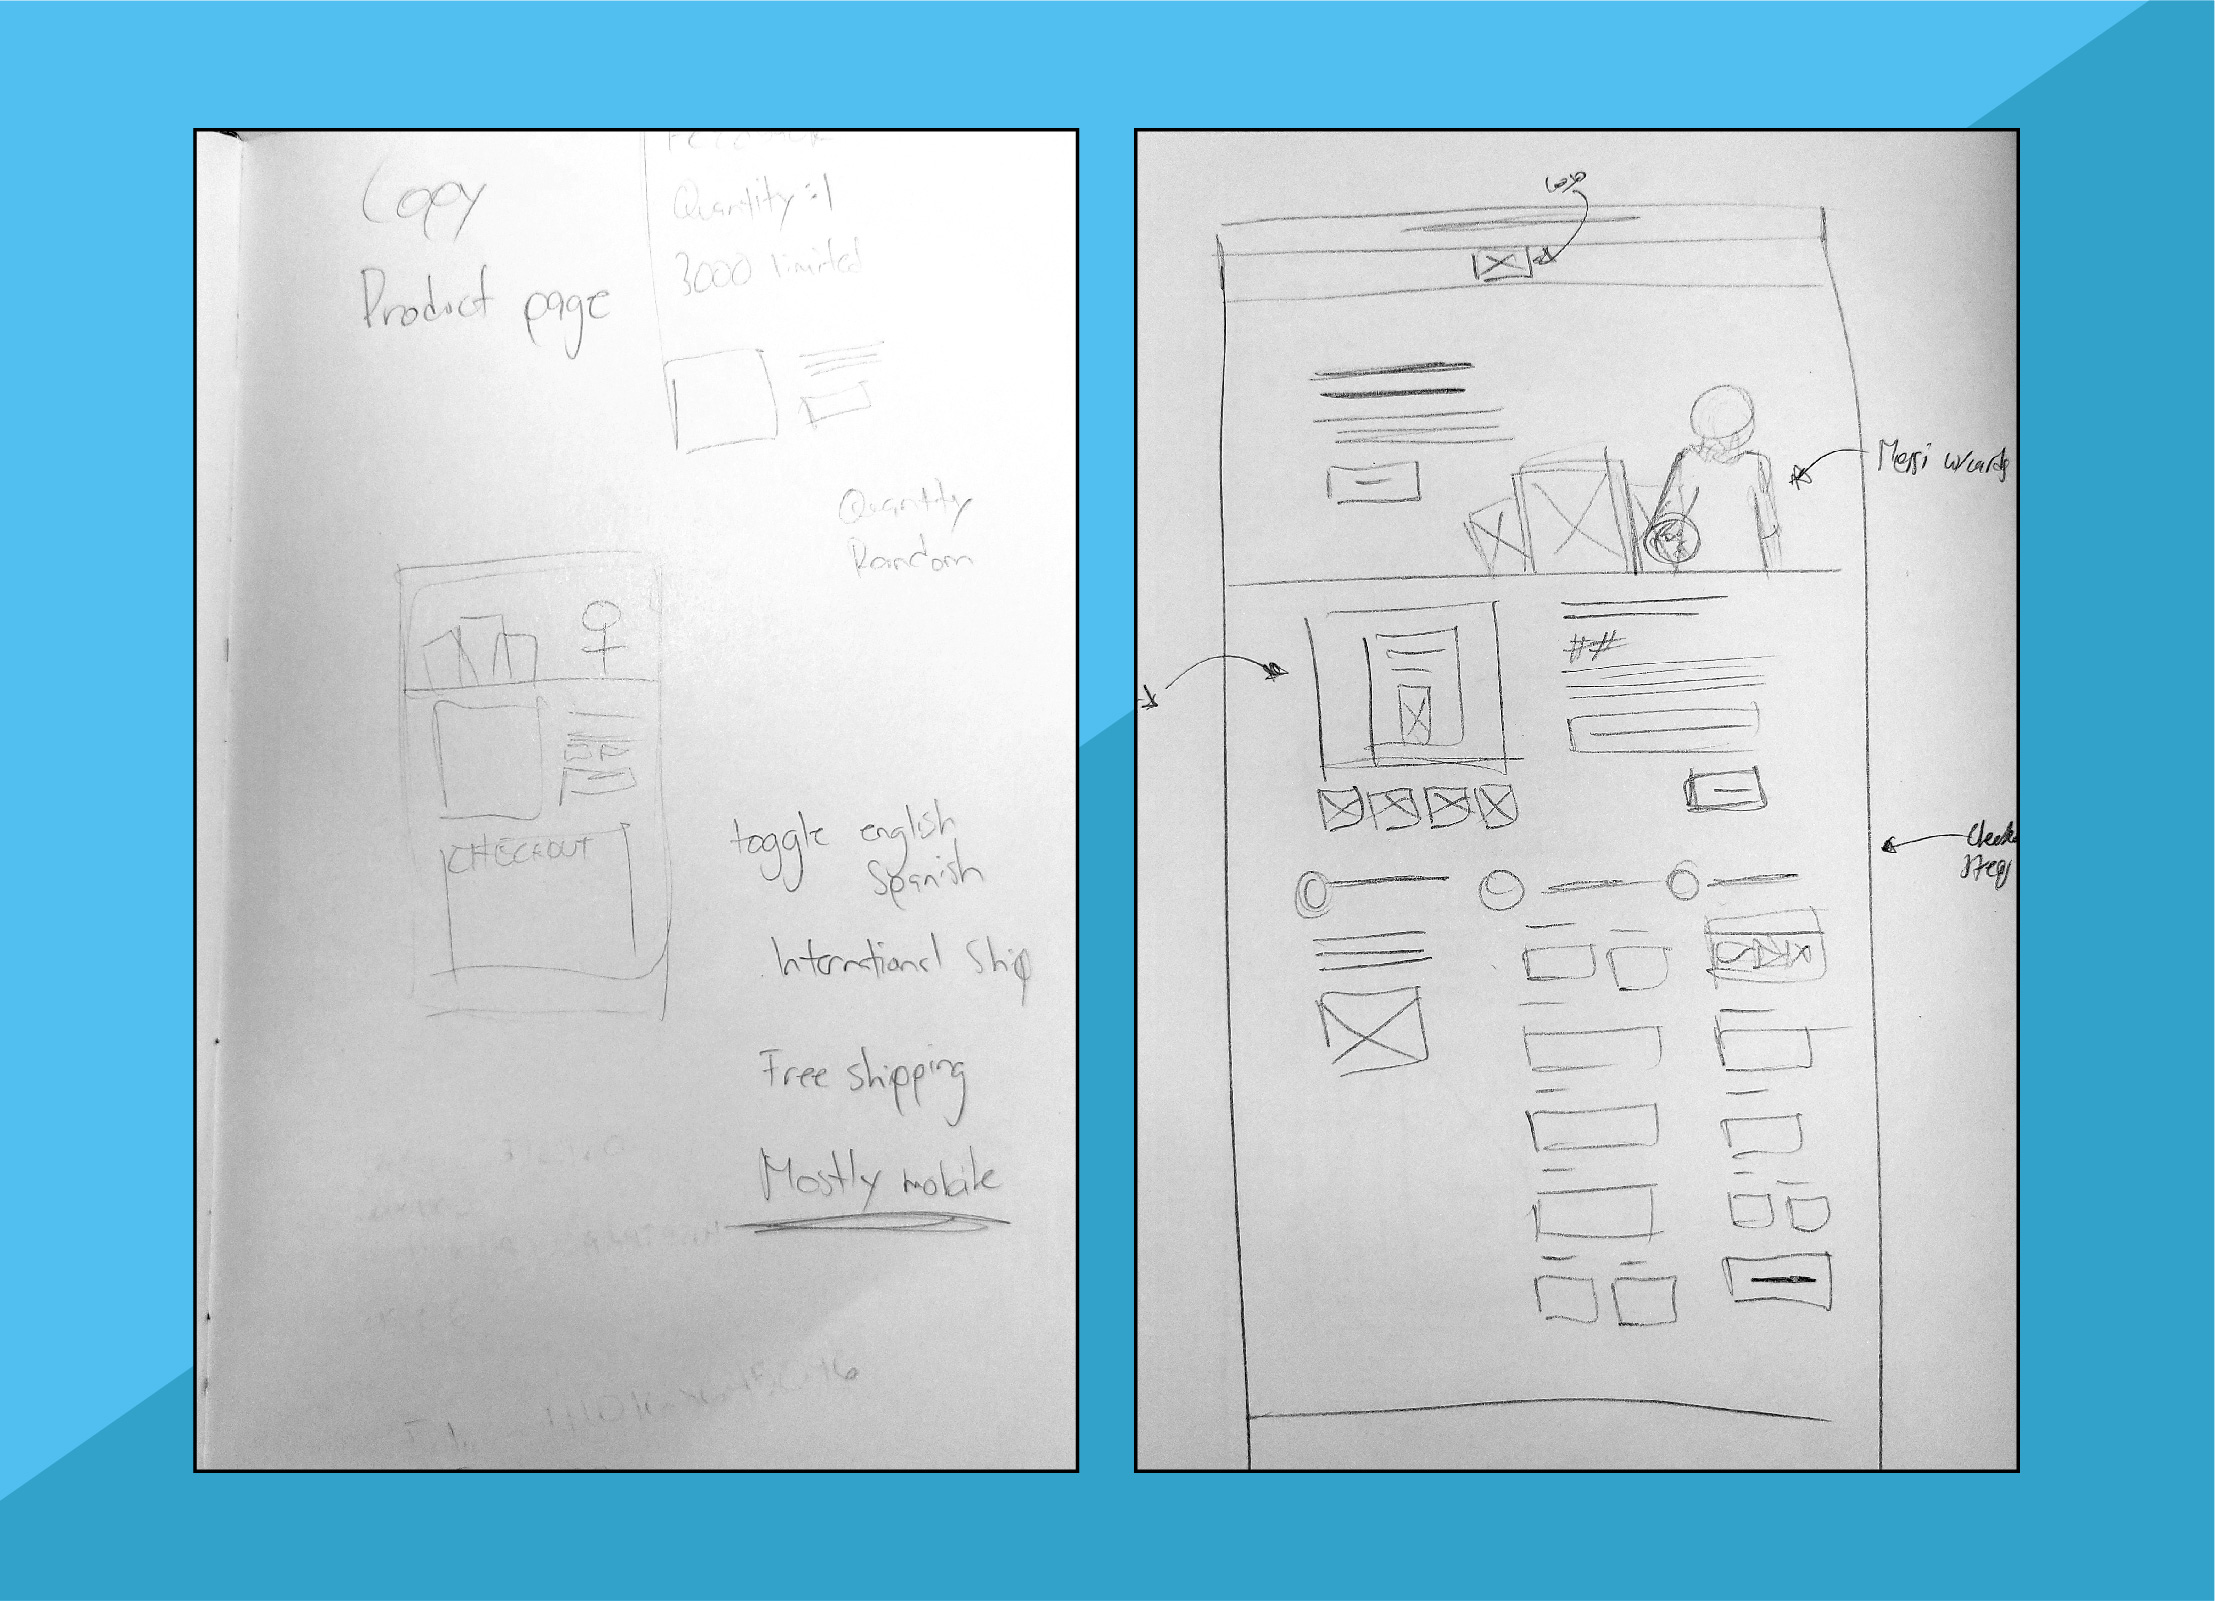 Copy
Product page
Quantity = 1
3000 limited
Quantity
Random
CHECKOUT
toggle english
Spanish
International Ship
Free shipping
Mostly mobile
logo
Messi w/cards
##